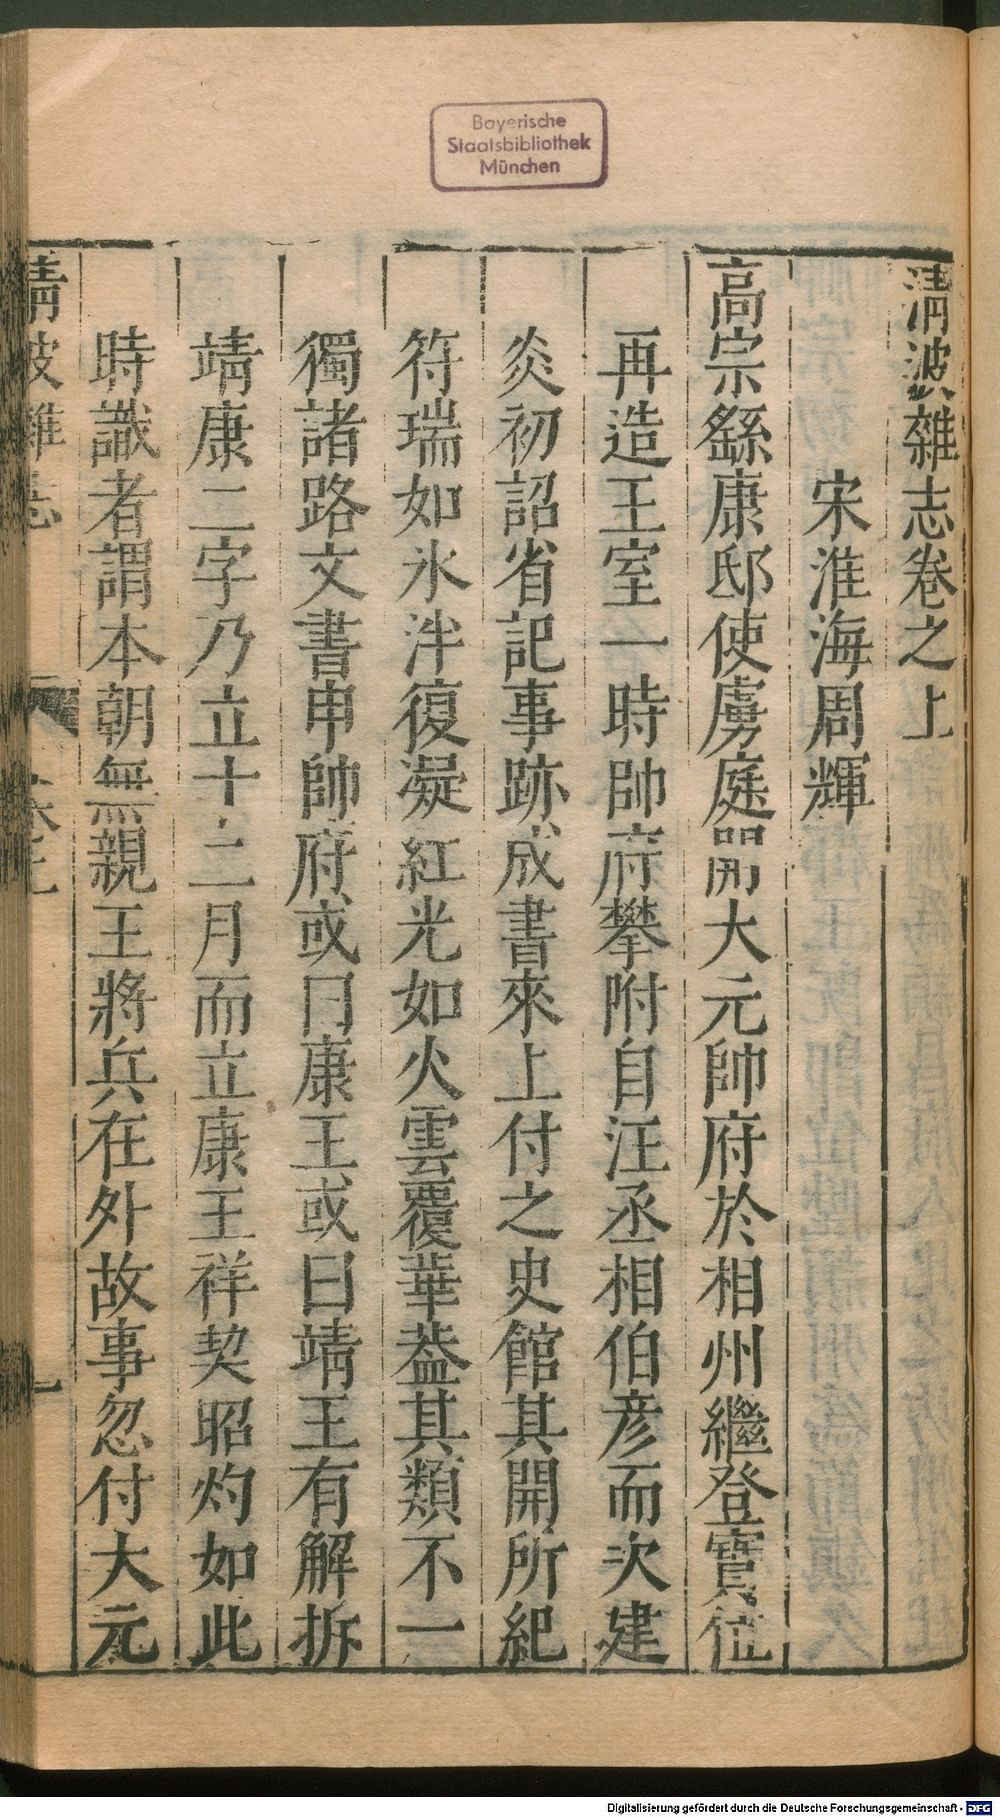 Bayerische
Staatsbibliothek
München
清波雜志卷之上
宋淮海周輝
高宗繇康邸使虜庭開大元帥府於相州繼登寶位
再造王室一時帥府攀附自汪丞相伯彦而次建
炎初詔省記事跡成書來上付之史館其開所紀
符瑞如氷泮復凝紅光如火雲覆華葢其類不一
獨諸路文書申帥府或曰康王或曰靖王有解拆
靖康二字乃立十二月而立康王祥契昭灼如此
時識者謂本朝無親王將兵在外故事忽付大元
清波雜志
卷上
一
Digitalisierung gefördert durch die Deutsche Forschungsgemeinschaft - DFG